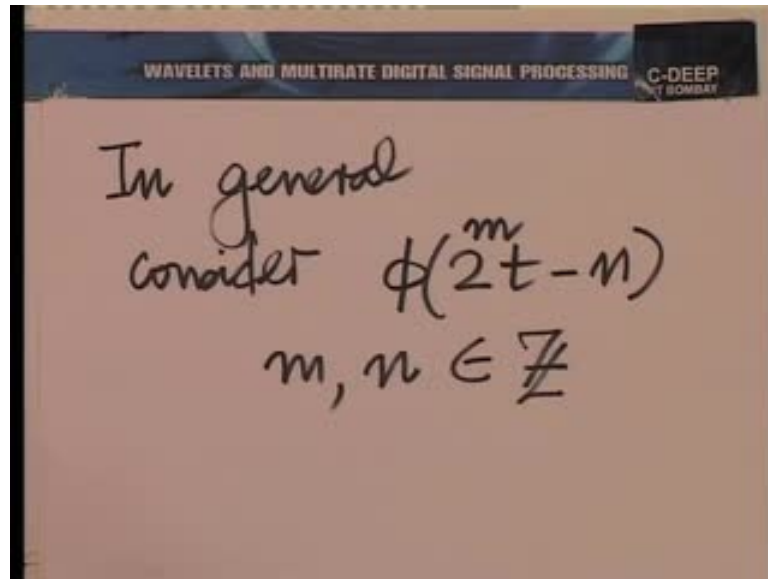 WAVELETS AND MULTIRATE DIGITAL SIGNAL PROCESSING
C-DEEP
IIT BOMBAY
In general
consider ϕ(2ᵐt - n)
m, n ∈ ℤ